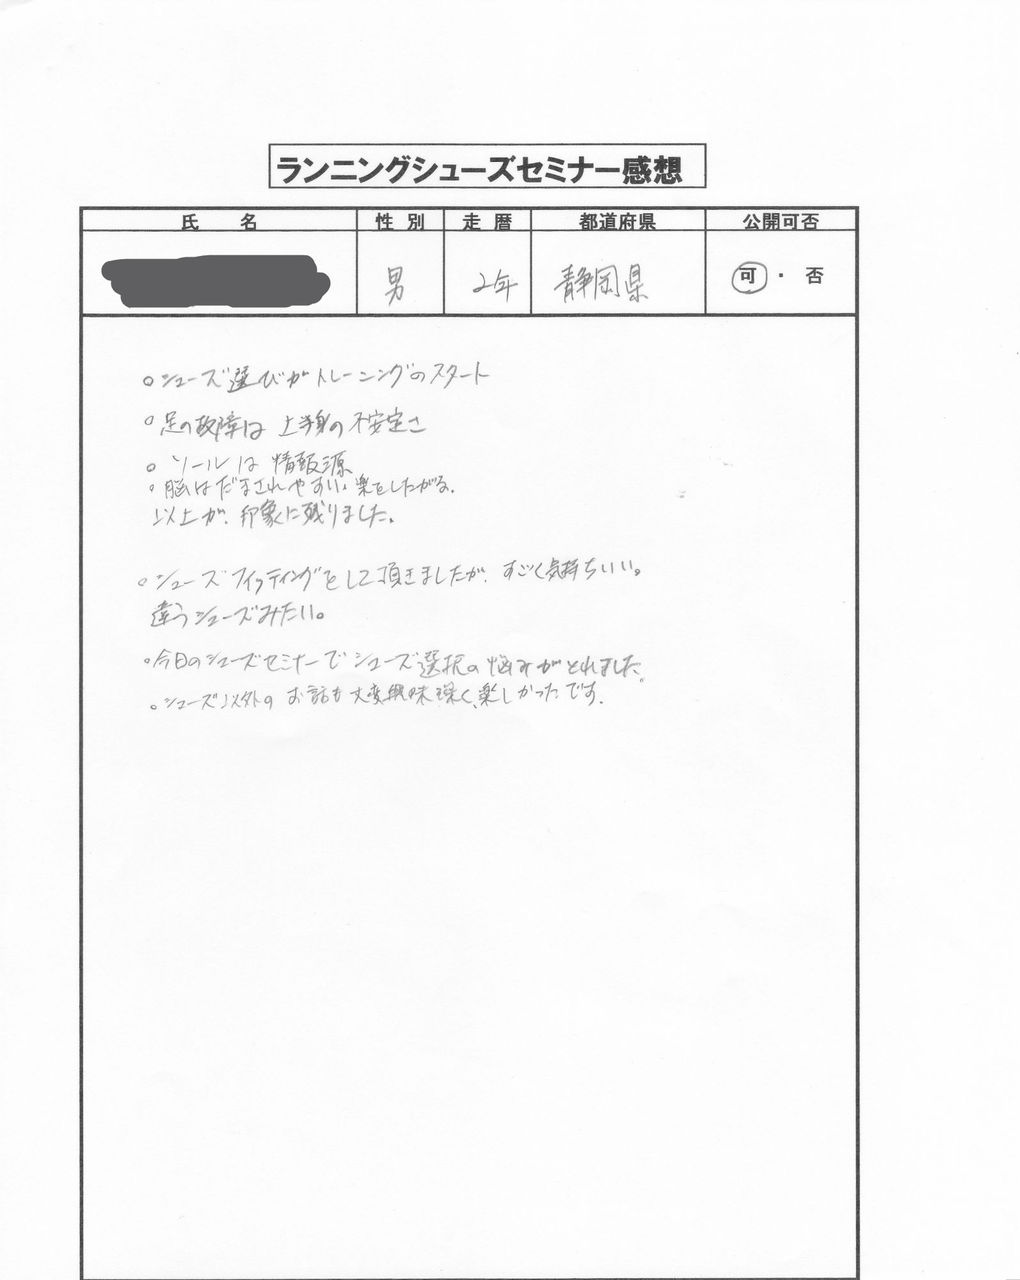 ランニングシューズセミナー感想
氏 名 性 別 走 暦 都道府県 公開可否
男 2年 静岡県 可 ・ 否
○シューズ選びがトレーニングのスタート
○足の故障は上半身の不安定さ
○ソールは情報源
○脳はだまされやすい、楽をしたがる。
以上が、印象に残りました。
○シューズフィッティングをして頂きましたが、すごく気持ちいい。
違うシューズみたい。
○今日のシューズセミナーでシューズ選択の悩みがとれました。
○シューズ以外のお話も大変興味深く、楽しかったです。